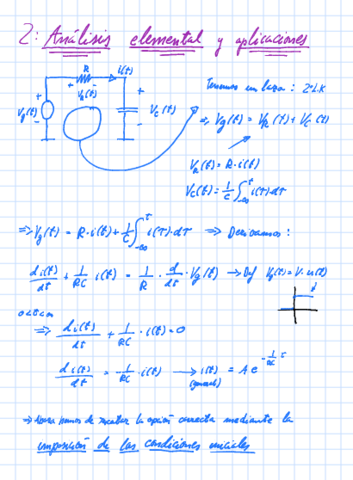 2: Análisis elemental y aplicaciones
R i(t)
+ - 
+ Vg(t) -
+ VR(t) -
+ Vc(t) -
Tenemos un lazo: 2ºLK
⇒ Vg(t) = VR(t) + Vc(t)
VR(t) = R·i(t)
Vc(t) = 1/C ∫_{-∞}^{t} i(τ)·dτ
⇒ Vg(t) = R·i(t) + 1/C ∫_{-∞}^{t} i(τ)·dτ ⇒ Derivamos:
di(t)/dt + 1/RC i(t) = 1/R · d/dt · Vg(t) → Def Vg(t) = V·u(t)
0<t<∞
⇒ di(t)/dt + 1/RC · i(t) = 0
di(t)/dt = -1/RC · i(t) → i(t) = A e^{-1/RC t}
(general)
⇒ Ahora hemos de la opción correcta mediante la
imposición de las condiciones iniciales